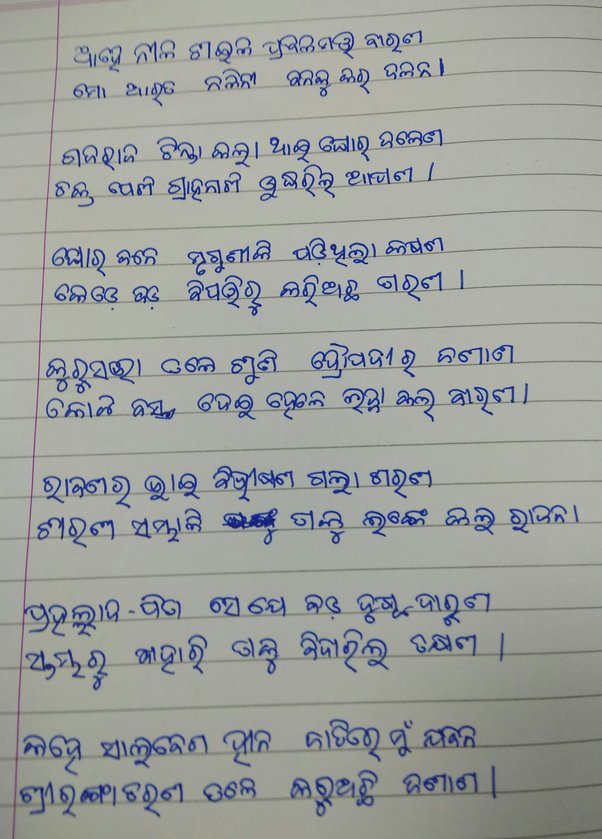 ଆହେ ନୀଳ ଶଇଳ ପ୍ରବଳ ମତ୍ତ ବାରଣ
ମୋ ଆରତ ନଳିନୀ ବନକୁ କର ଦଳନ।
ଗଜରାଜ ଚିନ୍ତା କଲା ଥାଇ ଘୋର ଜଳେଣ
ଚକ୍ର ପେଶି ଗ୍ରାହନାଶି ଉଦ୍ଧରିଲ ଆପଣ।
ଘୋର ବନେ ମୃଗୁଣୀକି ପଡ଼ିଥିଲା କଷଣ
କେଡ଼େ ବଡ଼ ବିପତ୍ତିରୁ କରିଅଛ ତାରଣ।
କୁରୁସଭା ତଳେ ଶୁଣି ଦ୍ରୌପଦୀର ଜଣାଣ
କୋଟି ବସ୍ତ୍ର ଦେଇ ହେଳେ ଲଜ୍ଜା କଲ ବାରଣ।
ରାବଣର ଭାଇ ବିଭୀଷଣ ଗଲା ଶରଣ
ଶରଣ ସମ୍ଭାଳି ତାକୁ ଲଙ୍କେ କଲ ରାଜନ।
ପ୍ରହଲ୍ଲାଦ-ପିତା ସେ ଯେ ବଡ଼ ଦୁଷ୍ଟ ଦାରୁଣ
ସ୍ତମ୍ଭରୁ ବାହାରି ତାକୁ ବିଦାରିଲ ତକ୍ଷଣ।
କହେ ସାଲବେଗ ହୀନ ଜାତିରେ ମୁଁ ଯବନ
ଶ୍ରୀରଙ୍ଗାଚରଣ ତଳେ କରୁଅଛି ଜଣାଣ।